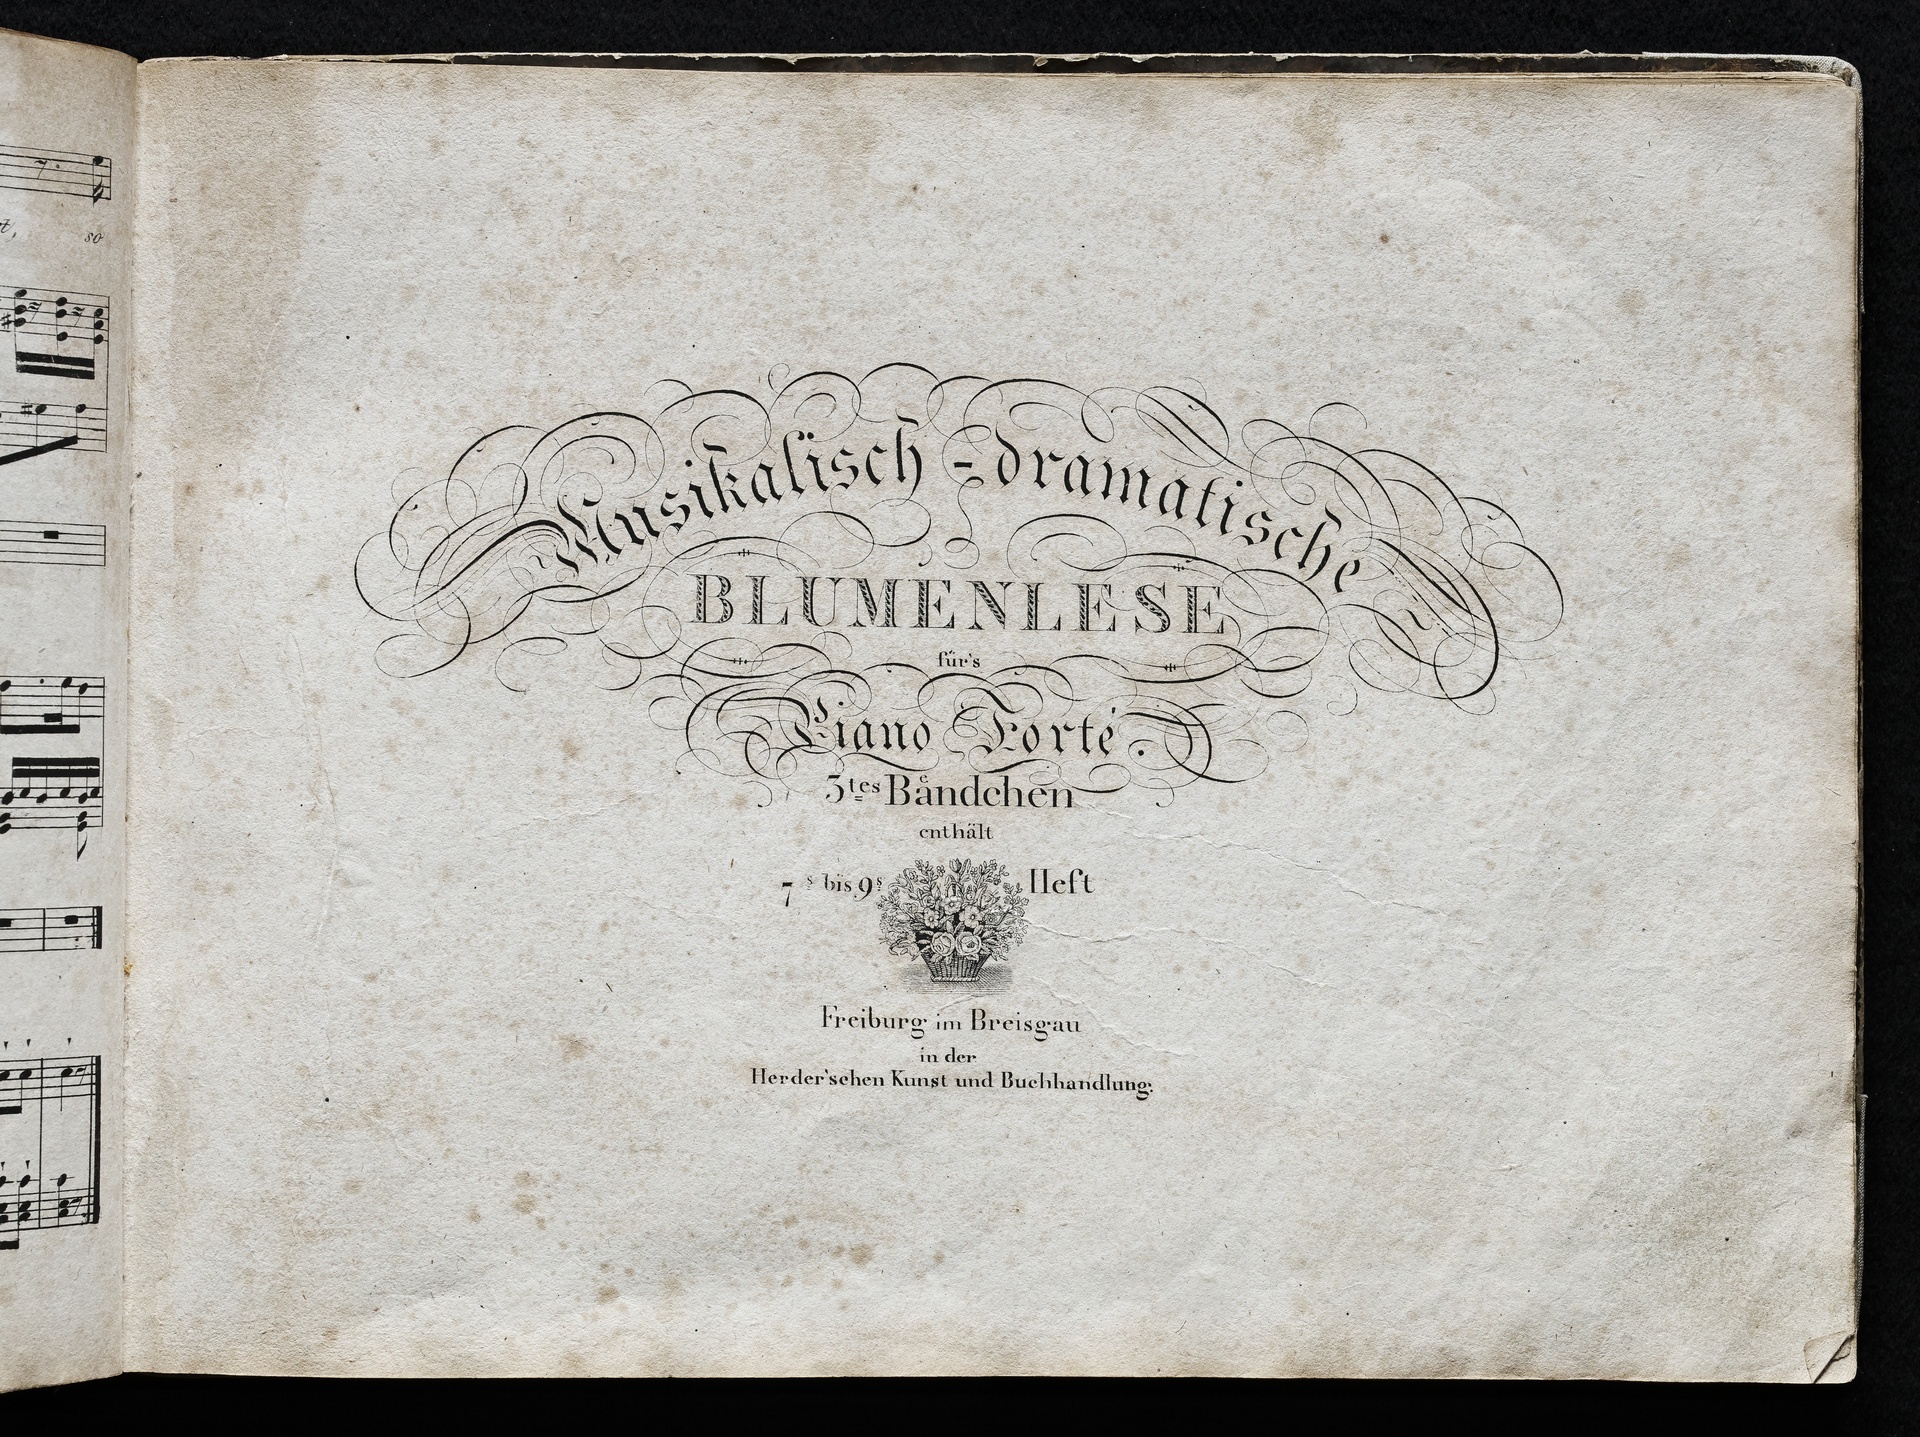 t, so
Musikalisch-dramatische
BLUMENLESE
für's
Piano Forté.
3tes Bändchen
enthält
7s bis 9s Heft
Freiburg im Breisgau
in der
Herder'schen Kunst und Buchhandlung.